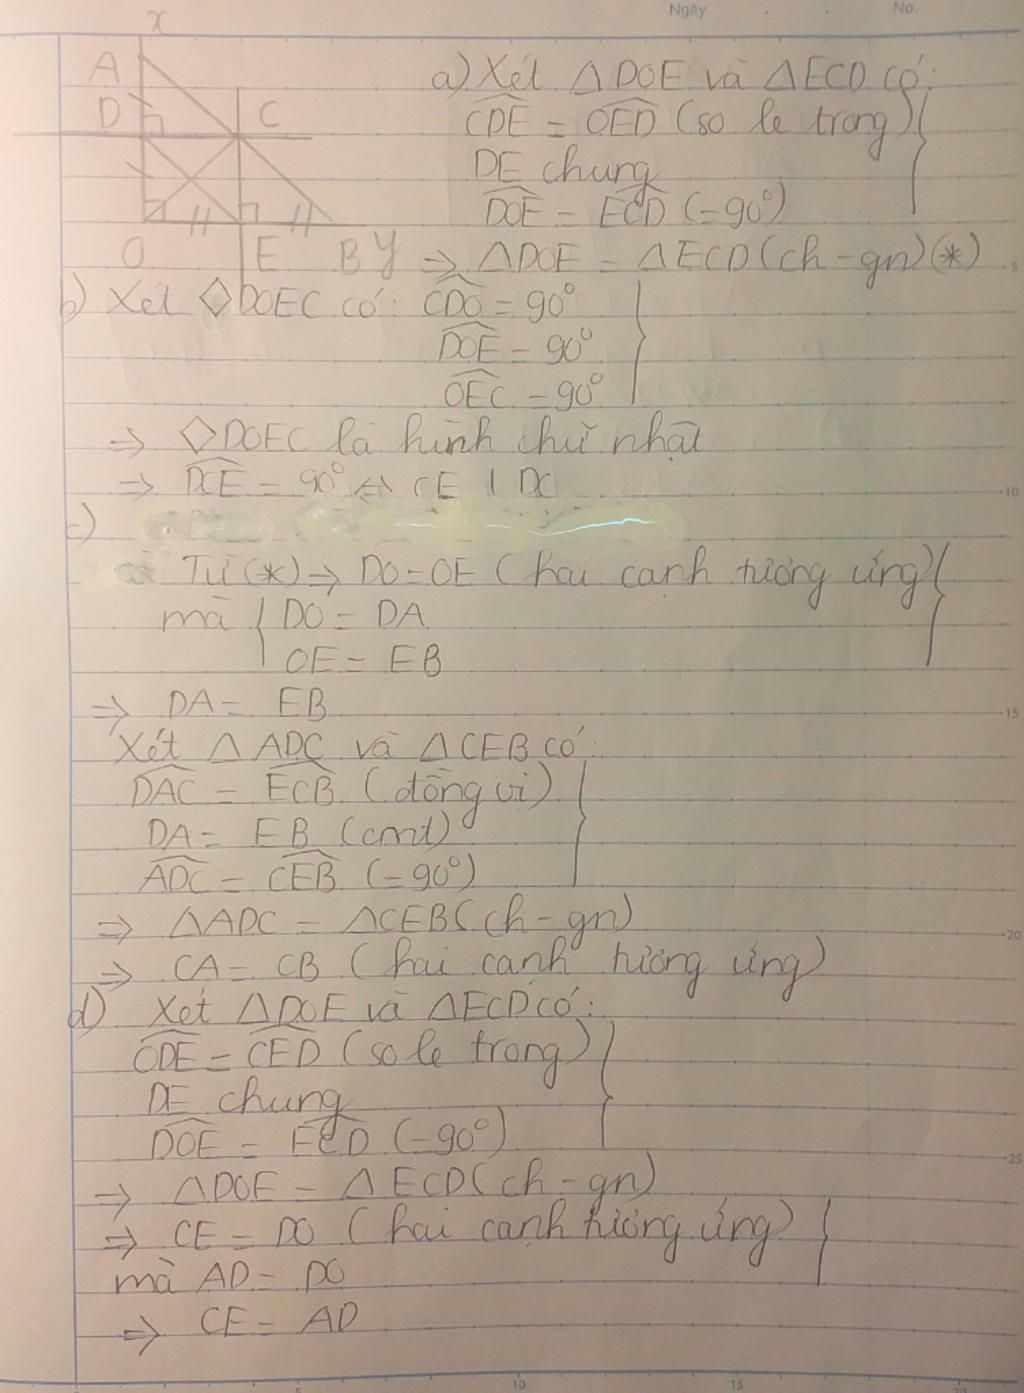 Ngày No.
x
A
D
C
O E B y
a) Xét △DOE và △ECD có:
CDE = OED (so le trong)
DE chung
DOE = ECD (= 90°)
=> △DOE = △ECD (ch - gn) (*)
b) Xét ◇DOEC có: CDO = 90°
DOE = 90°
OEC = 90°
=> ◇DOEC là hình chữ nhật
=> DCE = 90° <=> CE ⊥ DC
c)
Từ (*) => DO = OE (hai cạnh tương ứng)
mà { DO = DA
OE = EB
=> DA = EB
Xét △ADC và △CEB có:
DAC = ECB (đồng vị)
DA = EB (cmt)
ADC = CEB (= 90°)
=> △ADC = △CEB (ch - gn)
=> CA = CB (hai cạnh tương ứng)
d) Xét △DOE và △ECD có:
ODE = CED (so le trong)
DE chung
DOE = ECD (= 90°)
=> △DOE = △ECD (ch - gn)
=> CE = DO (hai cạnh tương ứng)
mà AD = DO
=> CE = AD
5
10
15
20
25
5 10 15 20